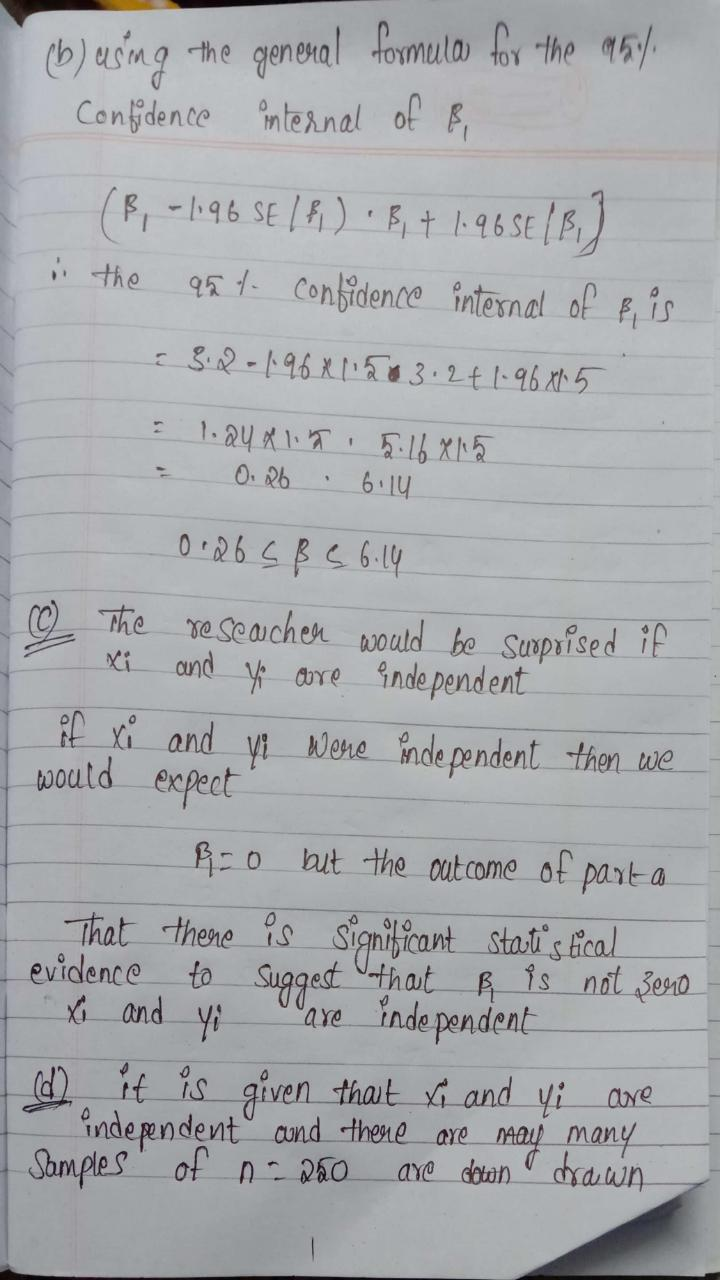 (b) using the general formula for the 95%
Confidence internal of β₁
(β₁ - 1.96 SE(β₁) · β₁ + 1.96 SE(β₁]
∴ the 95 % confidence internal of β₁ is
= 3.2 - 1.96 x 1.5 · 3.2 + 1.96 x 1.5
= 1.24 x 1.5 · 5.16 x 1.5
= 0.26 · 6.14
0.26 ≤ β ≤ 6.14
(c) The reseacher would be surprised if
xi and yi are independent
if xi and yi were independent then we
would expect
β₁ = 0 but the outcome of part a
That there is significant statistical
evidence to suggest that β₁ is not zero
xi and yi are independent
(d) it is given that xi and yi are
independent and there are may many
Samples of n = 250 are down drawn
1